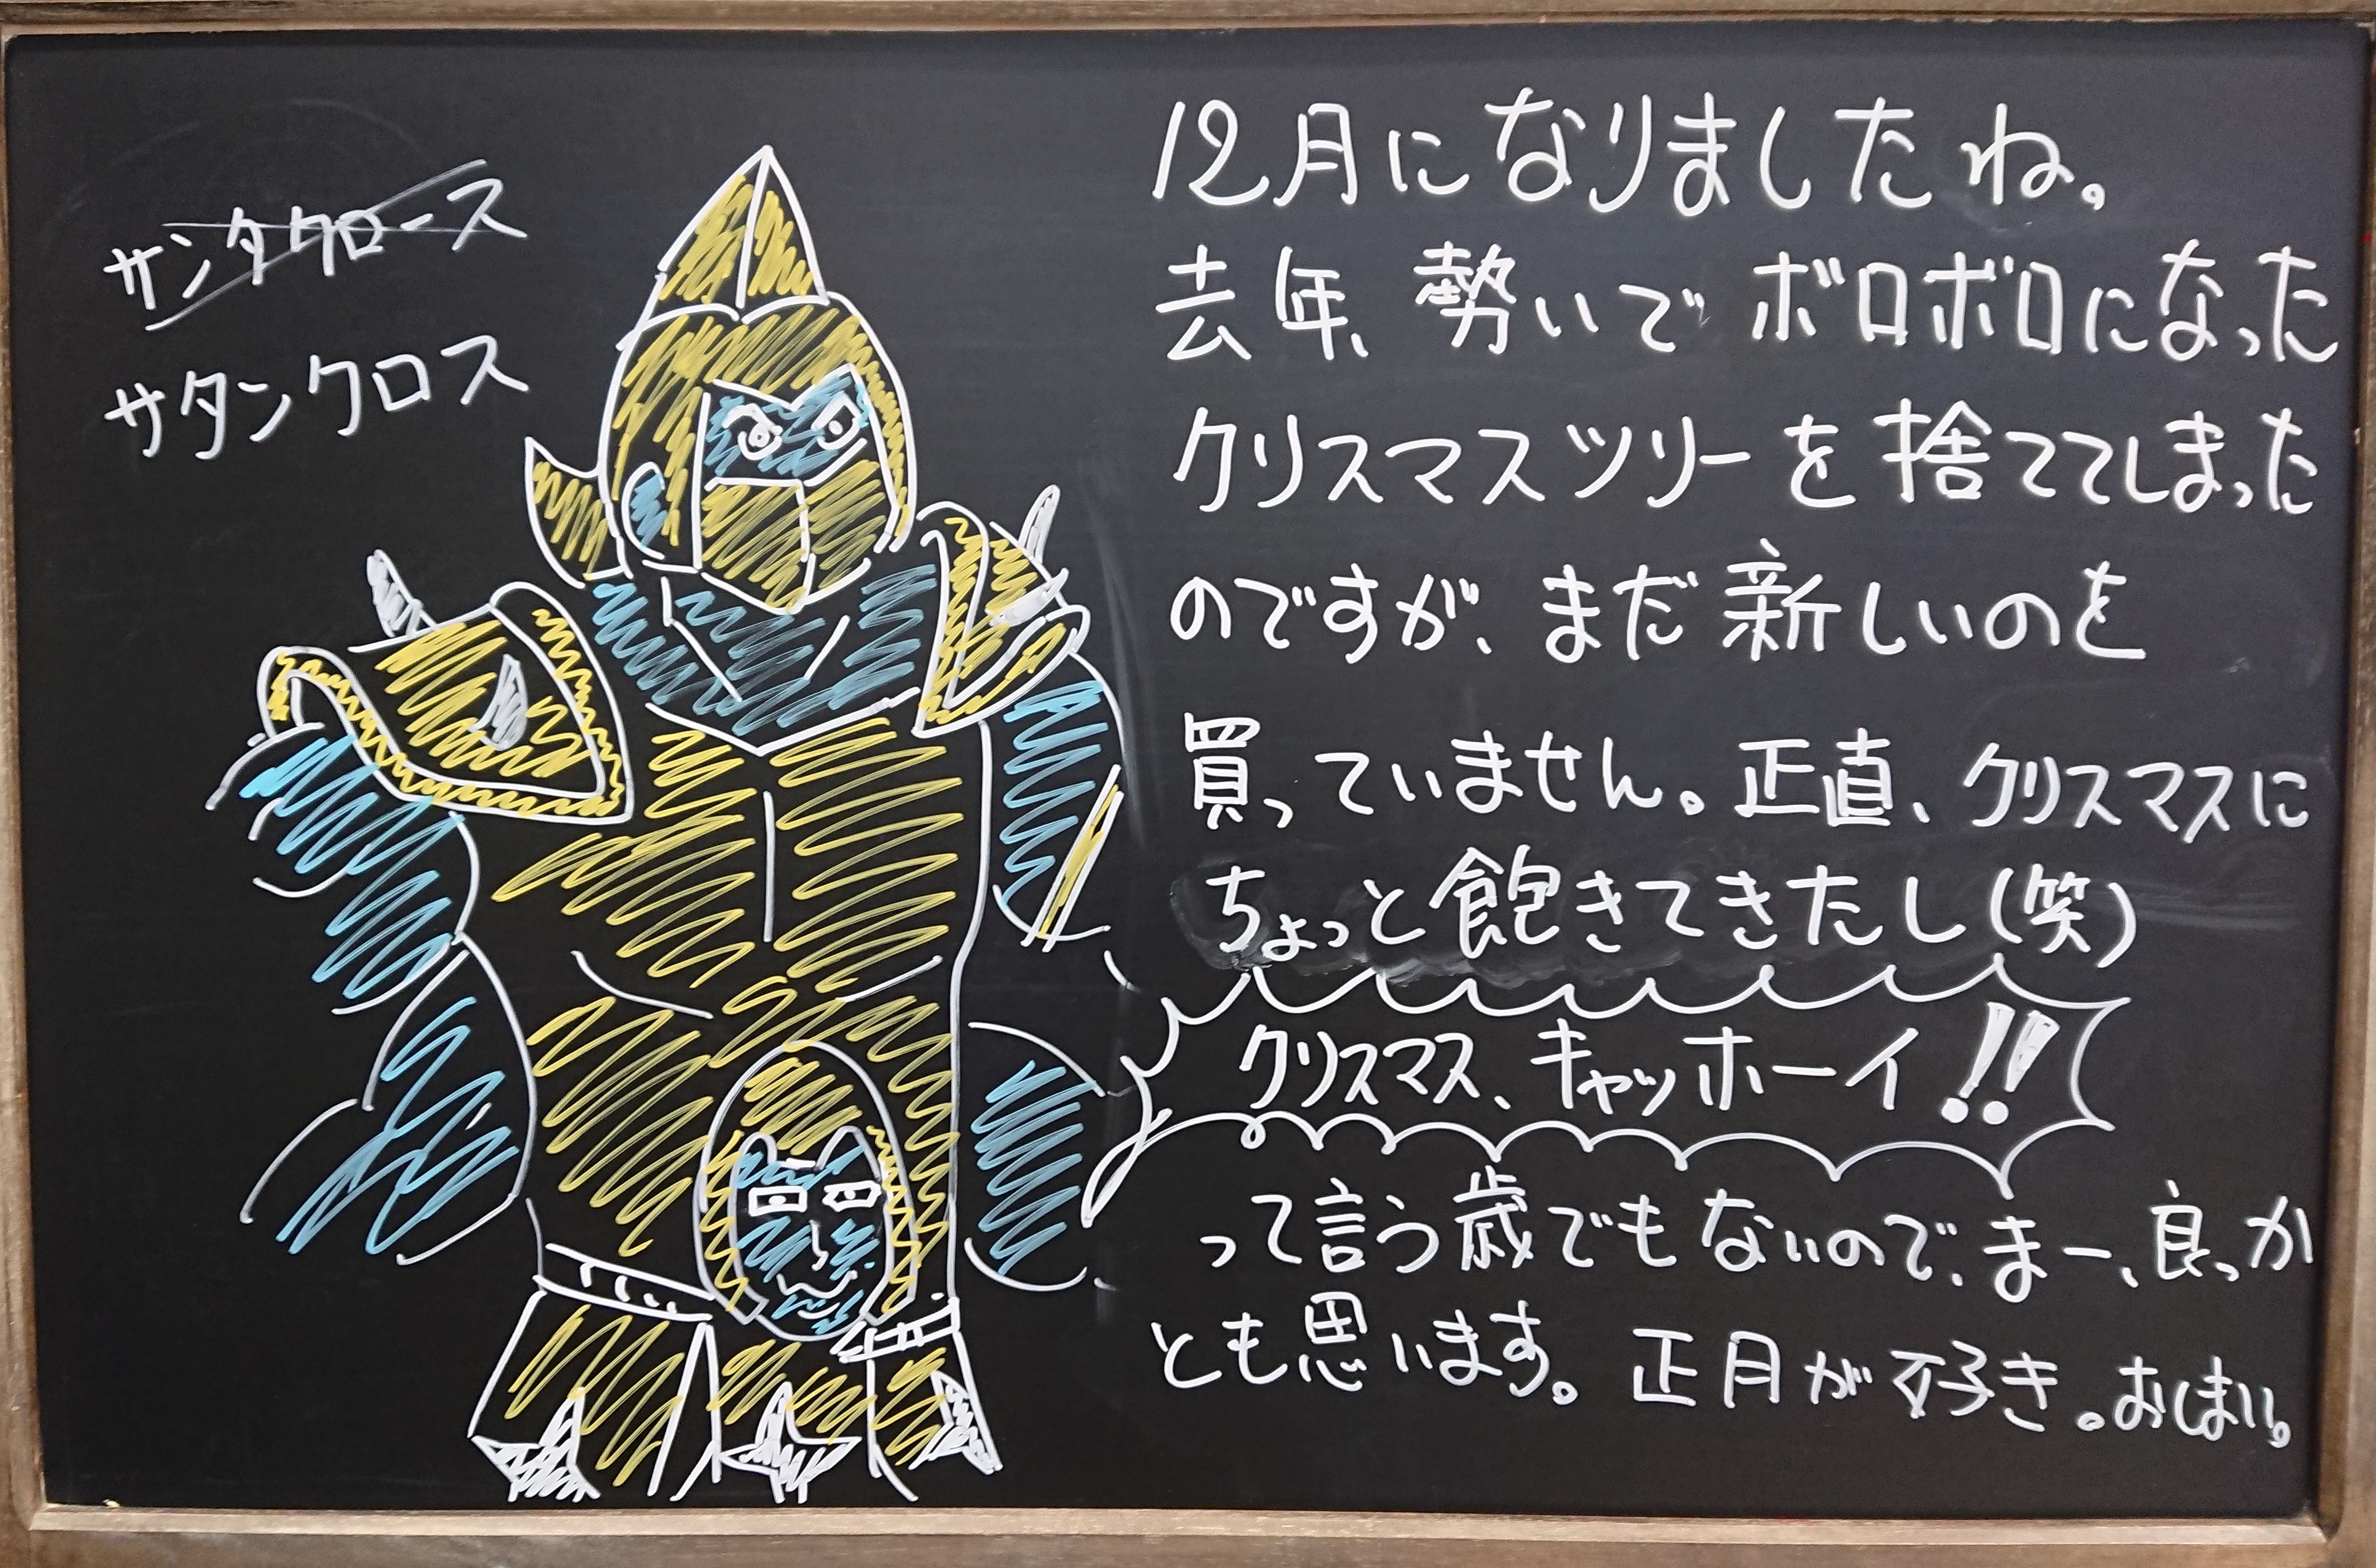 サンタクロース
サタンクロス
12月になりましたね。
去年、勢いでボロボロになった
クリスマスツリーを捨ててしまった
のですが、まだ新しいのを
買っていません。正直、クリスマスに
ちょっと飽きてきたし(笑)
クリスマス、キャッホーイ!!
って言う歳でもないので、まー、良っか
とも思います。正月が好き。おしまい。